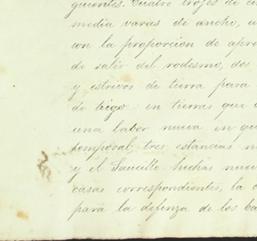 guientes. Cuatro trojes de
media varas de ancho,
con la proporcion de
de salir del rodesmo, dos
y estrivos de tierra para
de trigo en tierras que
una labor nueva en que
temporal, tres estancias
y el Saucillo hechas
casas correspondientes, la
para la defenza de los